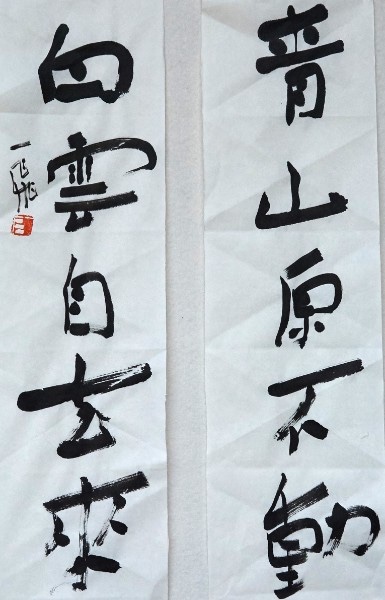 青山原不動
白雲自去來